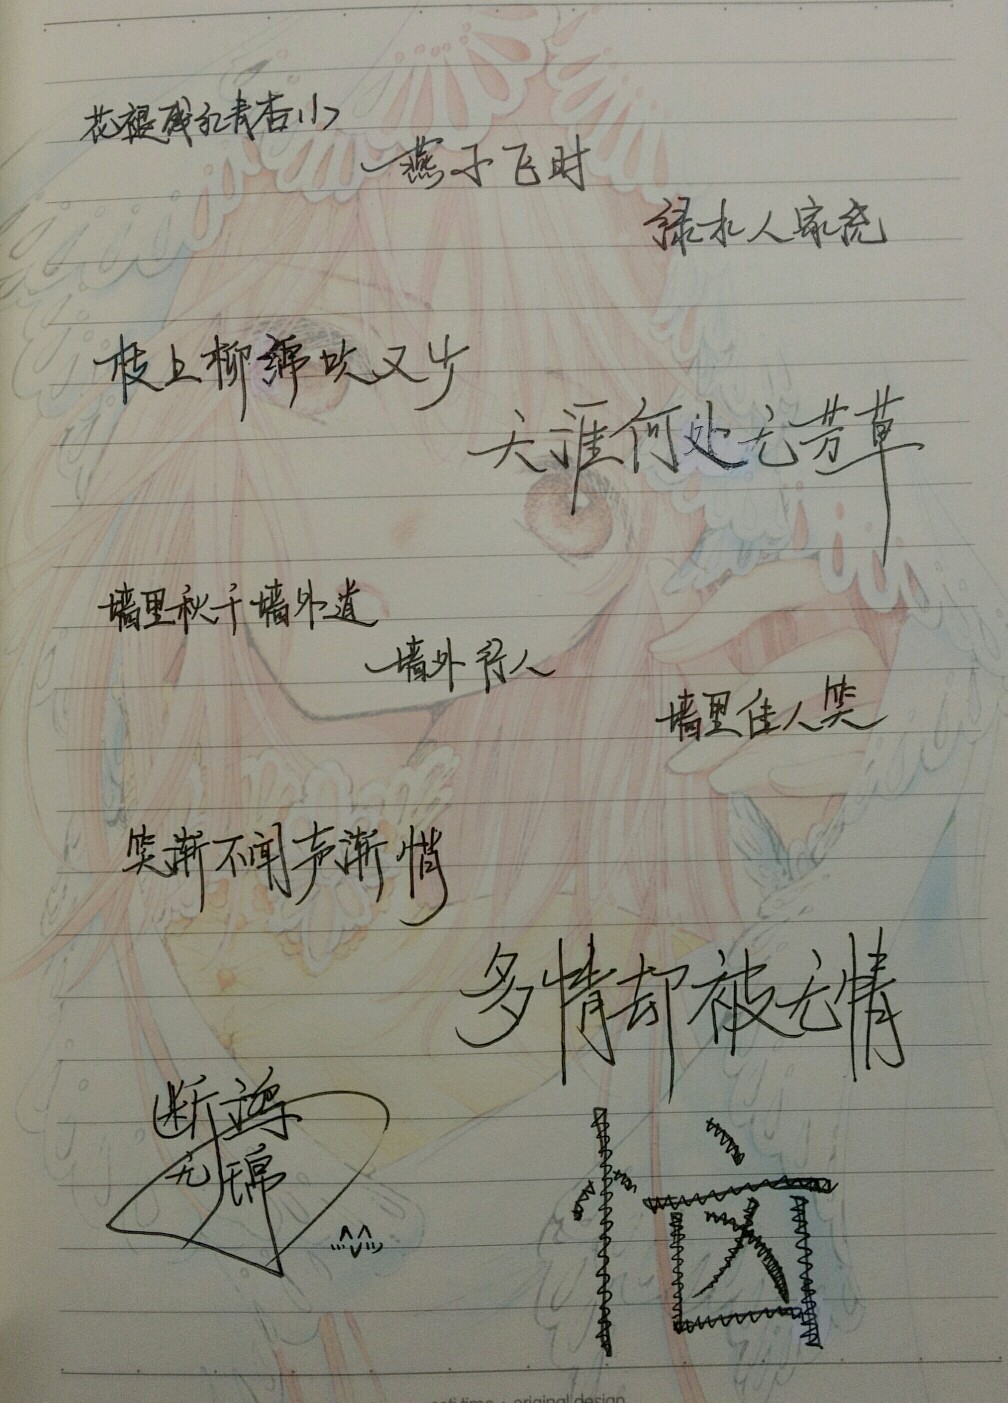 花褪残红青杏小
燕子飞时
绿水人家绕
枝上柳绵吹又少
天涯何处无芳草
墙里秋千墙外道
墙外行人
墙里佳人笑
笑渐不闻声渐悄
多情却被无情
恼
original design